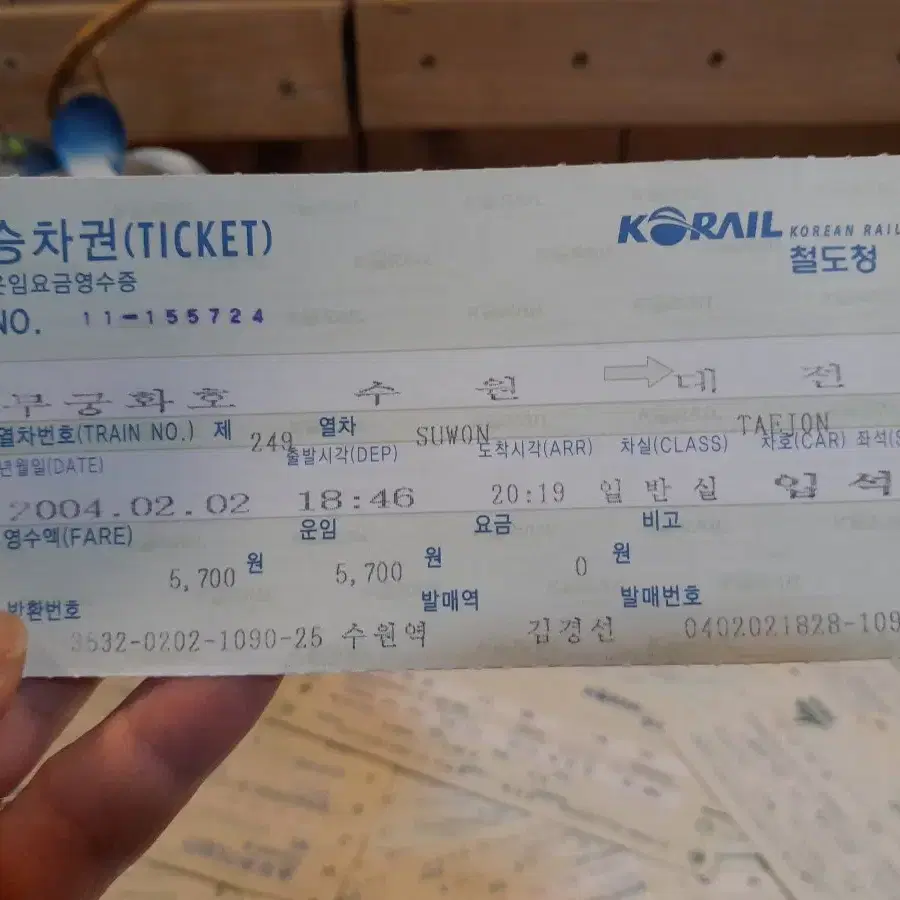 승차권(TICKET)
KORAIL KOREAN RAIL
운임요금영수증
철도청
NO. 11-155724
무궁화호 수원 → 대전
열차번호(TRAIN NO.) 제 249 열차 SUWON TAEJON
년월일(DATE) 출발시각(DEP) 도착시각(ARR) 차실(CLASS) 차호(CAR) 좌석(S
2004.02.02 18:46 20:19 일반실 입석
영수액(FARE) 운임 요금 비고
5,700 원 5,700 원 0 원
반환번호 발매역 발매번호
3532-0202-1090-25 수원역 김경선 0402021828-109